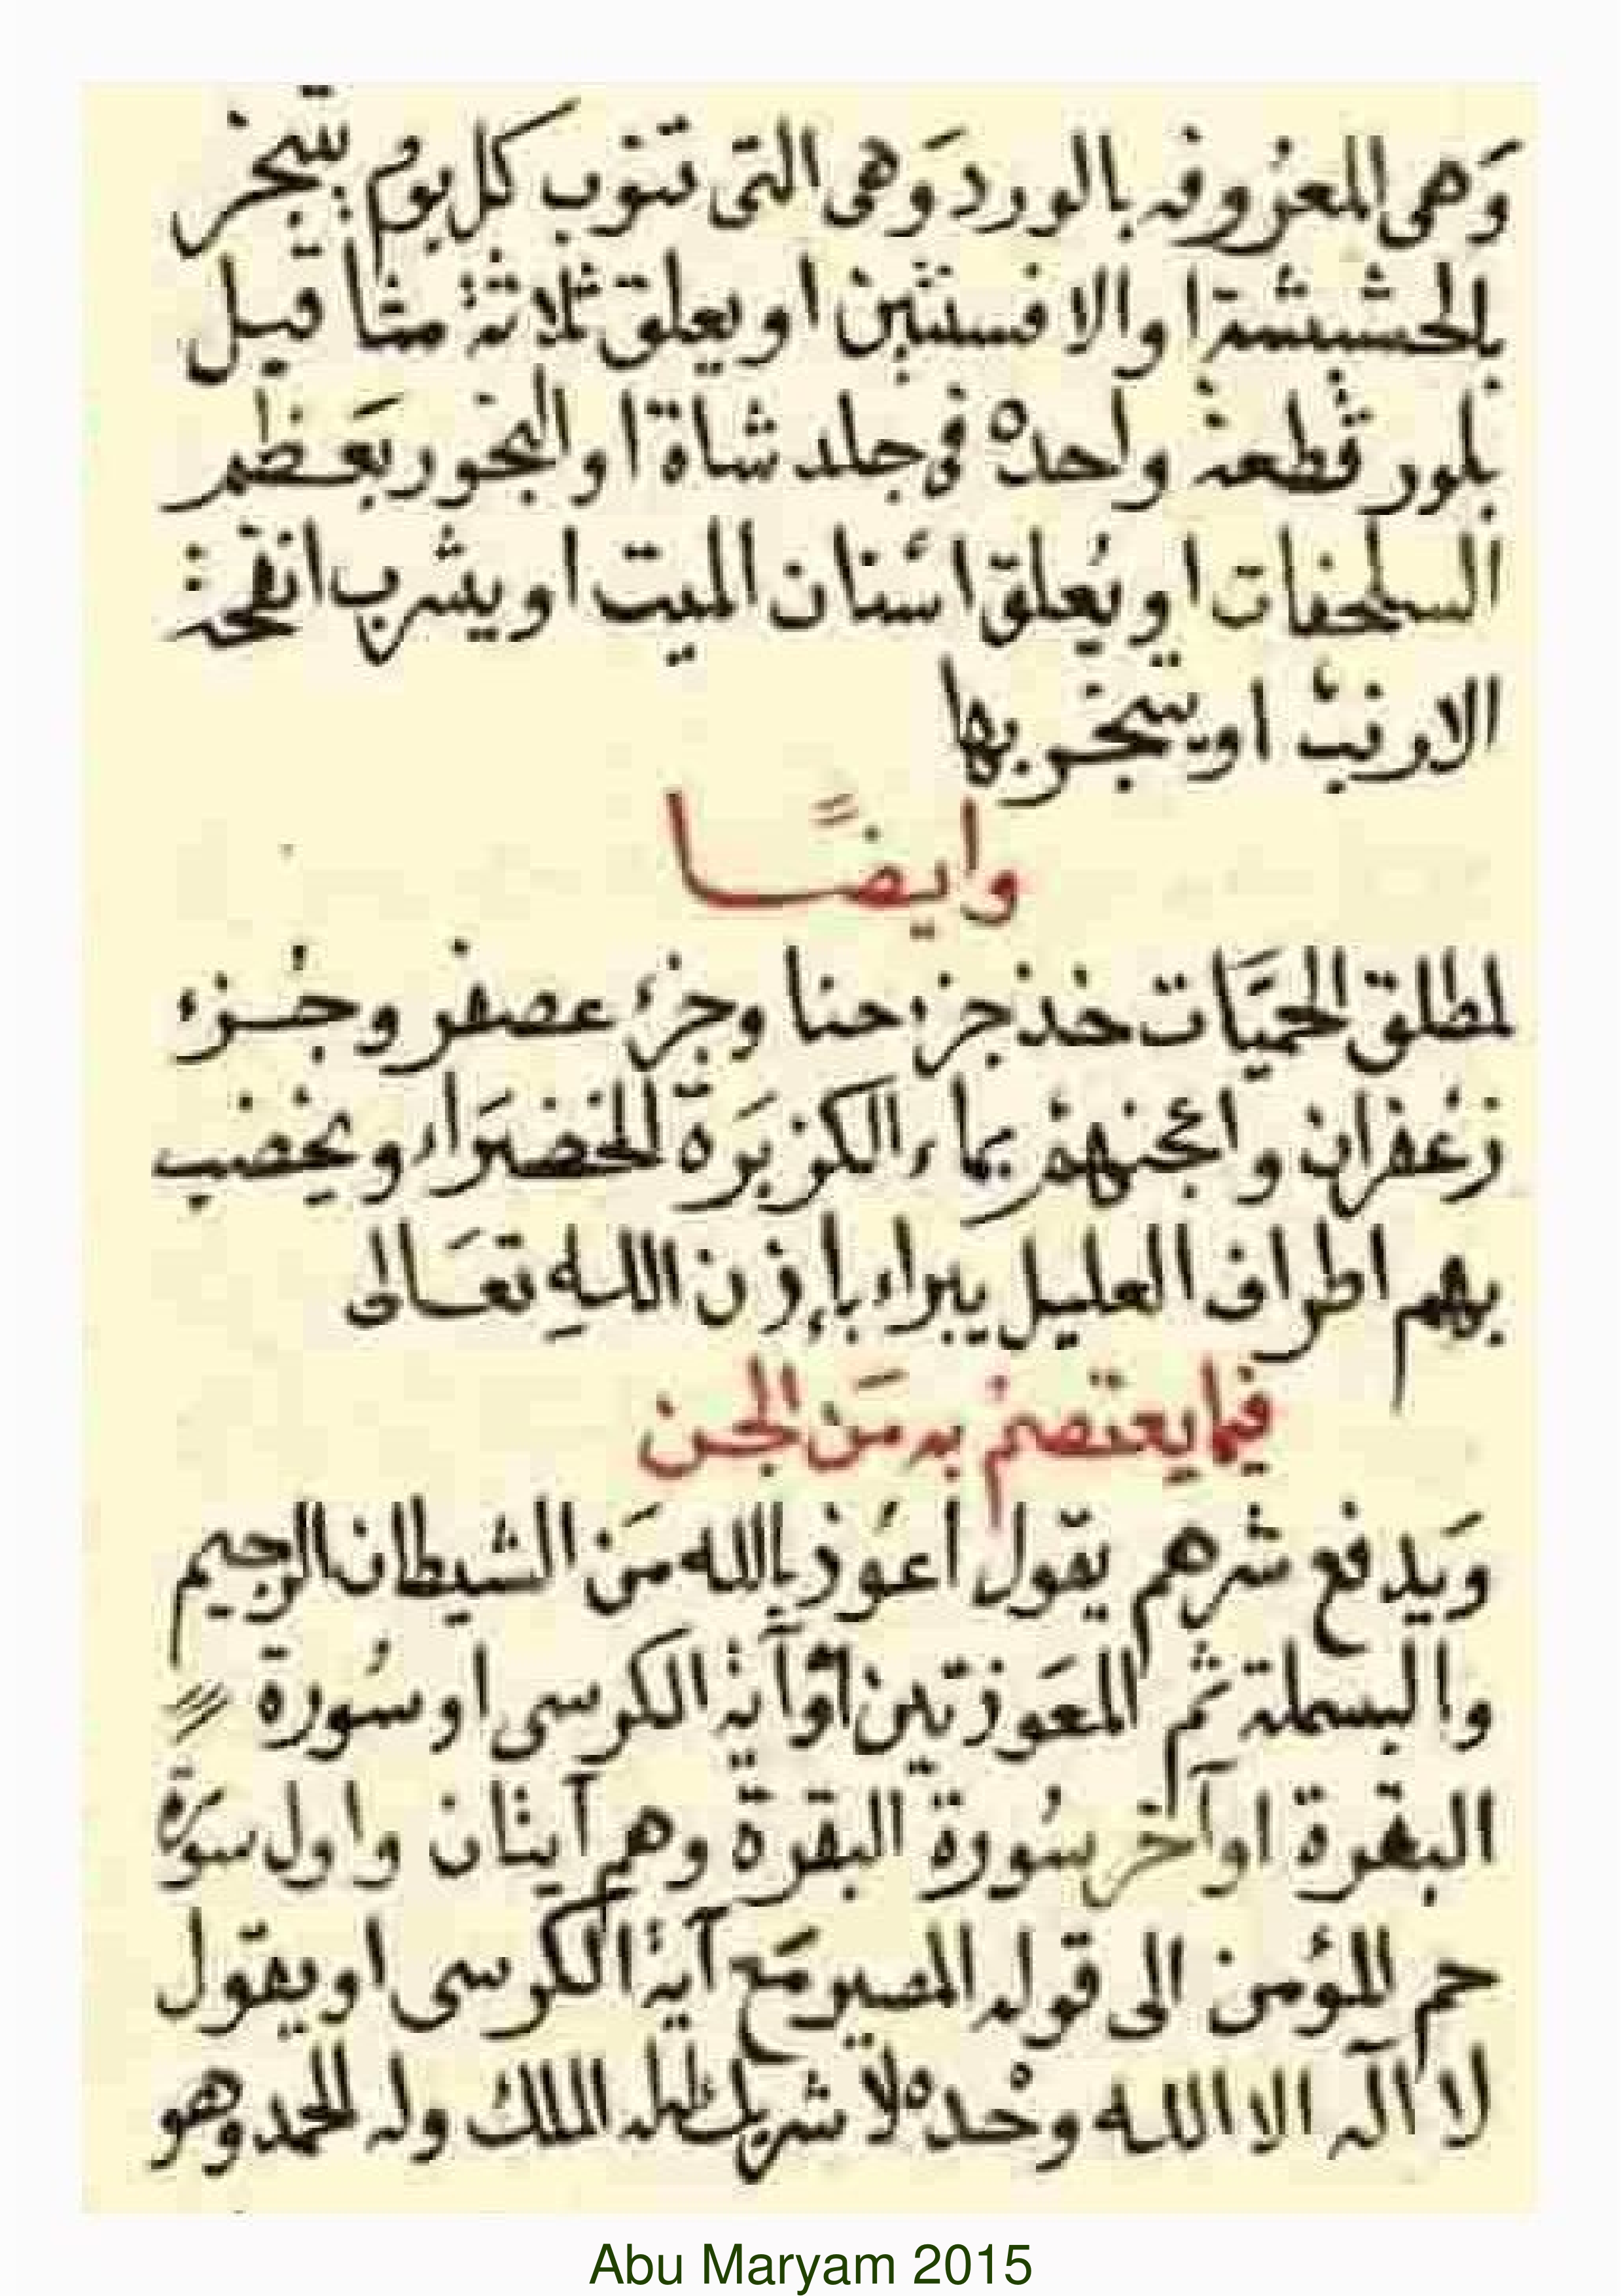 وَهى المعزوفه بالورد وَهى التى تنوب كل يوم يتبخر
بالحشيشة ا والافسنتين او يعلق ثلاثة مثاقيل
بلور قطعة واحدة فى جلد شاة ا والبخور بعَظم
السلحفات او يُعلق اسنان الميت او يشرب انفحة
الارنب او يتبخر بها
وايضًا
لمطلق الحمَّيات خذ جزء حنا وجزء عصفر وجزء
زعفران واعجنهم بماء الكزبَرة الخضرَاء ويخضب
بهم اطراف العليل يبراء بإذن اللهِ تعَالى
فيما يعتصم به مَن الجن
وَيدفع شرهم يقول اعوَذ بالله مَن الشيطان الرجيم
والبسملة ثم المعَوذتين اوآية الكرسى او سُورة
البقرة اوآخر سُورة البقرة وهم آيتان واول سورة
حم المؤمن الى قوله المصير مَع آية الكرسى او يقول
لا اله الا الله وحْده لا شريك له الملك وله الحمد وهو
Abu Maryam 2015